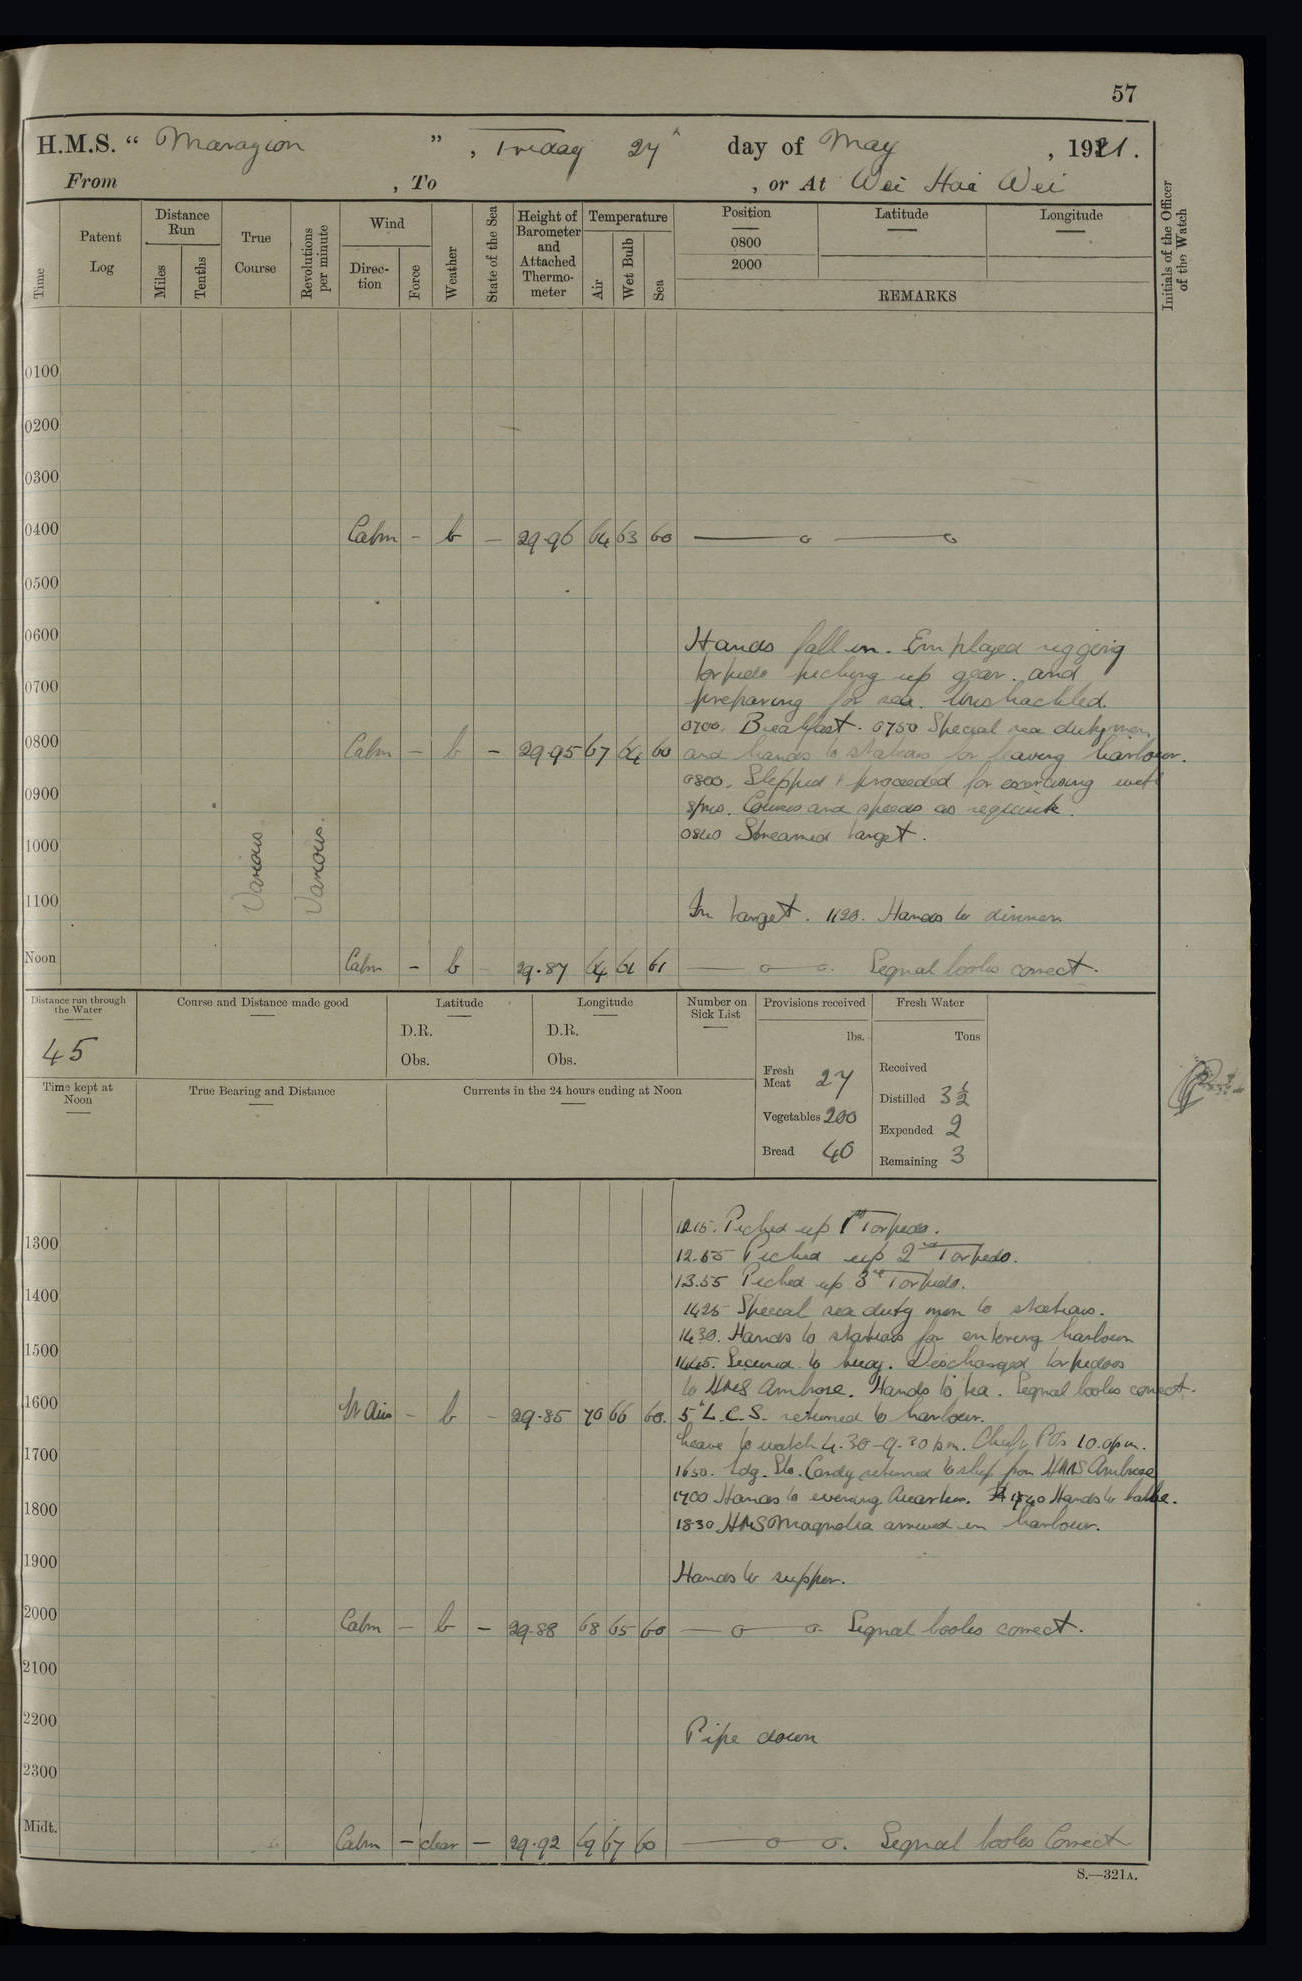 57
H.M.S. “ Marazion ” , Friday 27 day of May , 1921.
From , To , or At Wei Hai Wei
Time
Patent Log
Distance Run
Miles
Tenths
True Course
Revolutions per minute
Wind
Direction
Force
Weather
State of the Sea
Height of Barometer and Attached Thermometer
Temperature
Air
Wet Bulb
Sea
Position
0800
2000
Latitude
Longitude
REMARKS
Initials of the Officer of the Watch
0100
0200
0300
0400 Calm - b - 29.96 64 63 60
0500
0600 Hands fall in. Employed rigging
torpedo picking up gear. and
0700 preparing for sea. Unshackled.
0700. Breakfast. 0750 Special sea duty men
0800 Calm - b - 29.95 67 64 60 and hands to stations for leaving harbour.
0800. Slipped & proceeded for exercising with
0900 s/ms. Courses and speeds as requisite.
0840 Streamed target.
1000 Various Various
1100 In target. 1120. Hands to dinner.
Noon Calm - b - 29.87 64 61 61 Signal books correct.
Distance run through the Water
45
Course and Distance made good
Latitude
D.R.
Obs.
Longitude
D.R.
Obs.
Number on Sick List
Provisions received
lbs.
Fresh Meat 27
Vegetables 200
Bread 40
Fresh Water
Tons
Received
Distilled 3 1/2
Expended 2
Remaining 3
Time kept at Noon
True Bearing and Distance
Currents in the 24 hours ending at Noon
1215. Picked up 1st Torpedo.
1300 12.55 Picked up 2nd Torpedo.
13.55 Picked up 3rd Torpedo.
1400 1425 Special sea duty men to stations.
1430. Hands to stations for entering harbour
1500 1445. Secured to buoy. Discharged torpedoes
to HMS Ambrose. Hands to tea. Signal books correct.
1600 Lt Airs - b - 29.85 70 66 60. 5th L.C.S. returned to harbour.
Leave to watch 4.30-9.30 pm. Chiefs, POs 10.0 pm.
1700 1650. Ldg. Sto. Candy returned to ship from HMS Ambrose
1700 Hands to evening Quarters. 1740 Hands to bathe.
1800 1830 HMS Magnolia arrived in harbour.
1900 Hands to supper.
2000 Calm - b - 29.88 68 65 60 Signal books correct.
2100
2200 Pipe down
2300
Midt. Calm - clear - 29.92 69 67 60 Signal books Correct
S.—321A.